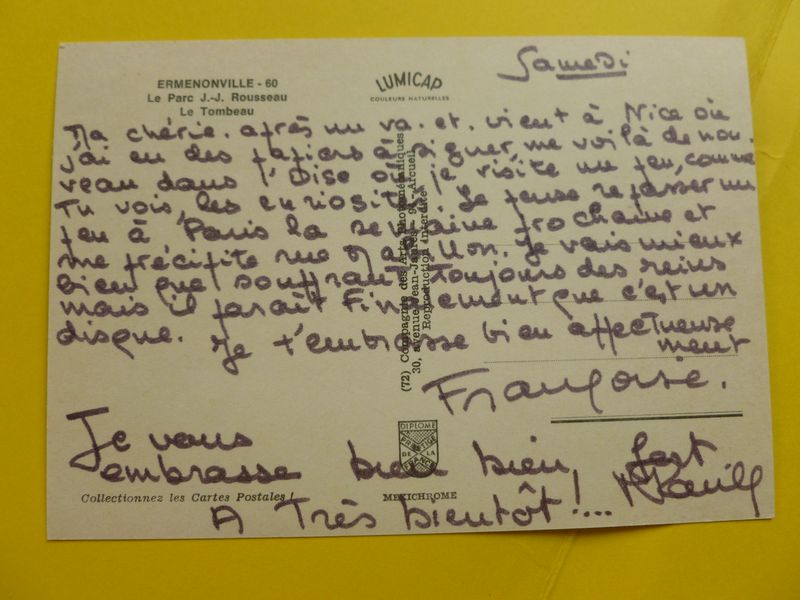 ERMENONVILLE - 60
Le Parc J.-J. Rousseau
Le Tombeau
LUMICAP
COULEURS NATURELLES
Samedi
Ma chérie. après un va. et. vient à Nice où
j'ai eu des papiers à signer, me voilà de nou-
veau dans l'Oise où je visite un peu, comme
Tu vois, les curiosités. Je pense repasser un
peu à Paris la semaine prochaine et
me précipite rue. Je vais mieux
bien que souffrant toujours des reins
mais il paraît Finalement que c'est un
disque. Je t'embrasse bien affectueuse
ment
Françoise.
Je vous
embrasse bien bien,
A Très bientôt !...
(72) Compagnie des Arts Photomécaniques
30, avenue Jean-Jaurès - 94 - Arcueil
Reproduction interdite
DIPLOME
PRESTIGE
DE LA
FRANCE
Collectionnez les Cartes Postales !
MEXICHROME